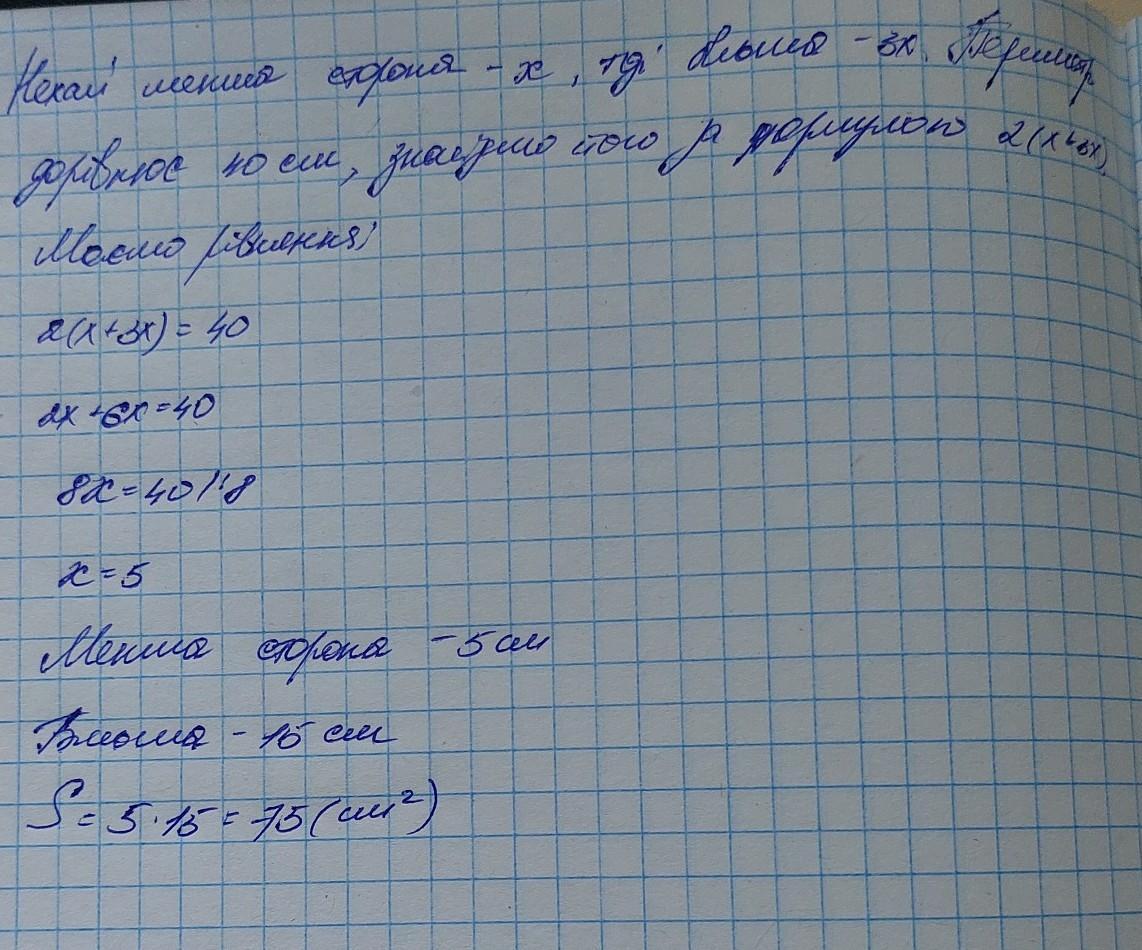 Нехай менша сторона - x, тоді більша - 3x. Периметр
дорівнює 40 см, знайдемо його за формулою 2(x+3x)
Маємо рівняння:
2(x+3x) = 40
2x+6x=40
8x=40 |:8
x=5
Менша сторона - 5 см
Більша - 15 см
S = 5·15 = 75 (см²)